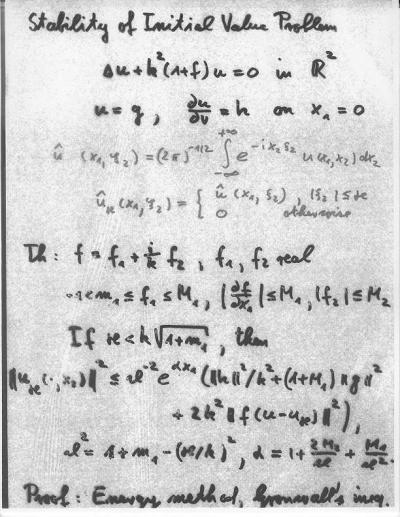 Stability of Initial Value Problem
Δu + k²(1+f) u = 0 in ℝ²
u = g , ∂u/∂ν = h on x₁ = 0
û (x₁, ξ₂) = (2π)^{-1/2} ∫_{-∞}^{+∞} e^{-i x₂ ξ₂} u(x₁,x₂) dx₂
û_κ (x₁, ξ₂) = { û (x₁, ξ₂) , |ξ₂| ≤ κ
0 otherwise
Th : f = f₁ + i/k f₂ , f₁, f₂ real
m₁ ≤ f₁ ≤ M₁ , |∂f/∂x₁| ≤ M₁ , |f₂| ≤ M₂
If κ < k √(1+m₁) , then
‖u_κ(·, x₂)‖² ≤ ϑ^{-2} e^{αx₁} (‖h‖²/k² + (1+M₁) ‖g‖²
+ 2k² ‖f(u-u_κ)‖²) ,
ϑ² = 1 + m₁ - (κ/k)² , α = 1 + 2M₂/ϑ + M₁/ϑ² .
Proof : Energy method, Gronwall's ineq.